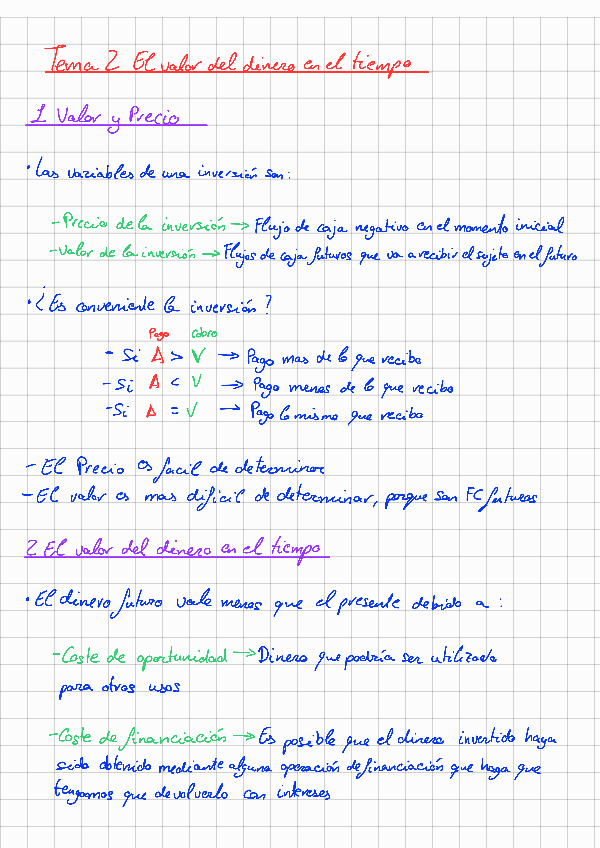 Tema 2 El valor del dinero en el tiempo
1 Valor y Precio
• Las variables de una inversión son:
- Precio de la inversión → Flujo de caja negativo en el momento inicial
- Valor de la inversión → Flujos de caja futuros que va a recibir el sujeto en el futuro
• ¿Es conveniente la inversión?
Pago Cobro
- Si A > V → Pago mas de lo que recibo
- Si A < V → Pago menos de lo que recibo
- Si A = V → Pago lo mismo que recibo
- El Precio es facil de determinar
- El valor es mas dificil de determinar, porque son FC futuros
2 El valor del dinero en el tiempo
• El dinero futuro vale menos que el presente debido a :
- Coste de oportunidad → Dinero que podría ser utilizado
para otros usos
- Coste de financiación → Es posible que el dinero invertido haya
sido obtenido mediante alguna operación de financiación que haga que
tengamos que devolverlo con intereses